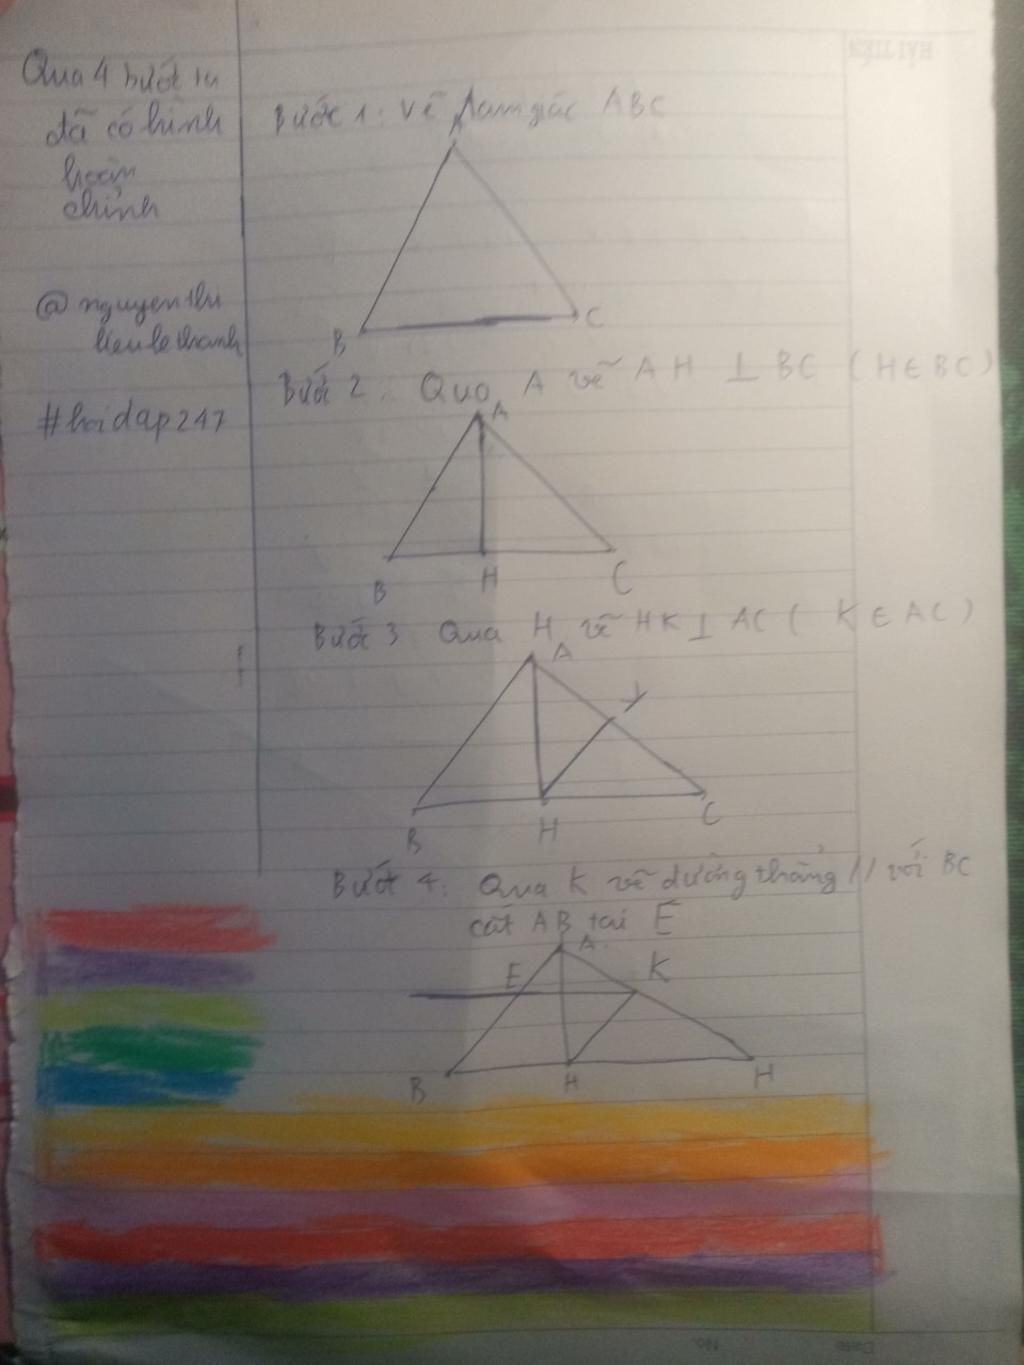 Qua 4 bước ta
đã có hình
hoàn
chỉnh
@nguyenthi
lieulethanh
#hoidap247
Bước 1: Vẽ tam giác ABC
A
B
C
Bước 2: Qua A vẽ AH ⊥ BC (H∈BC)
A
B
H
C
Bước 3 Qua H vẽ HK⊥AC ( K∈AC)
A
B
H
C
Bước 4: Qua K vẽ đường thẳng // với BC
cắt AB tại E
A
E
K
B
H
H
HẢI TIẾN
Date
No.